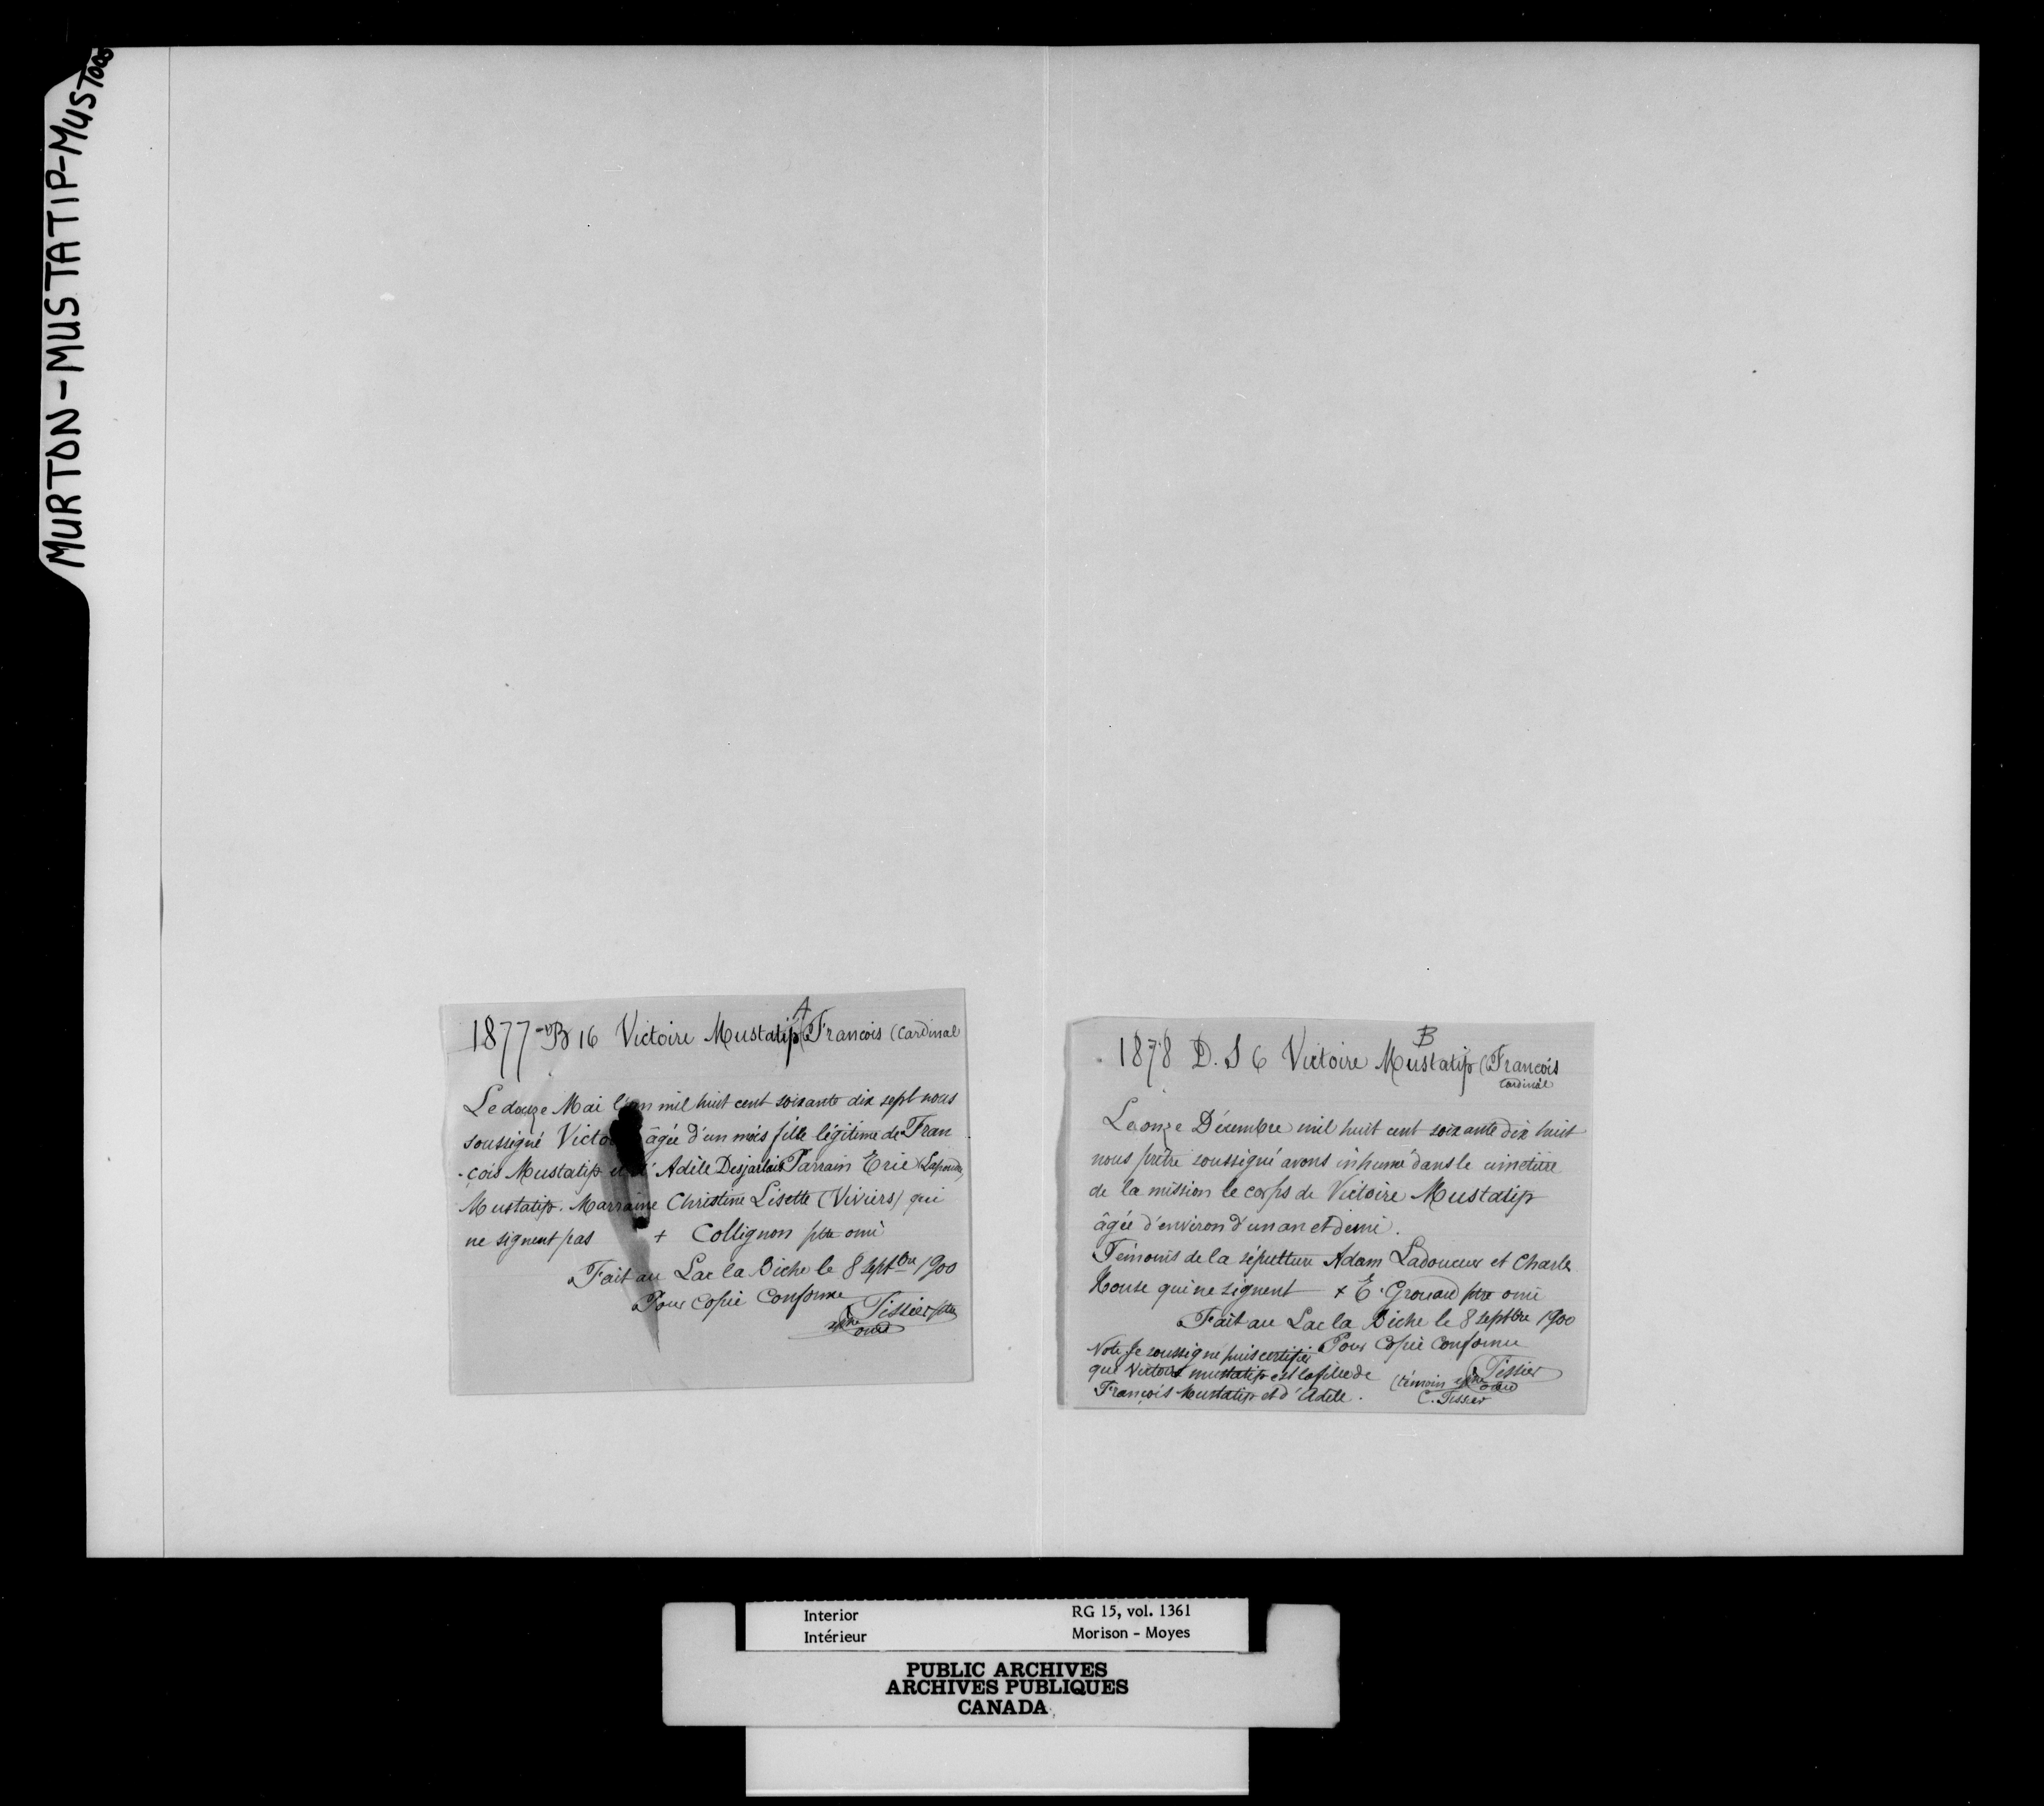 MURTON-MUSTATIP-MUSTOOS
A
1877 B 16 Victoire Mustatip (Francois (Cardinal
Le douze Mai l'an mil huit cent soixante dix sept nous
soussigné Victoire âgée d'un mois fille légitime de Fran
-çois Mustatip et d'Adèle Desjarlais Parrain Erie
Mustatip. Marraine Christine Lisette (Viviers) qui
ne signent pas + Collignon ptre omi
Fait au Lac la Biche le 8 septbre 1900
Pour copie conforme
Tissier ptre
omi
B
1878 D. S 6 Victoire Mustatip (François
Cardinal
Le onze Décembre mil huit cent soixante dix huit
nous prêtre soussigné avons inhumé dans le cimetière
de la mission le corps de Victoire Mustatip
âgée d'environ d'un an et demi.
Témoins de la sépulture Adam Ladouceur et Charles
House qui ne signent + E. Grouard ptre omi
Fait au Lac la Biche le 8 septbre 1900
Pour copie conforme
Note. Je soussigne puis certifier
que Victoire mustatip est la fille de
François Mustatip et d'Adèle.
(témoin Tissier
omi
C. Tissier
Interior
Intérieur
RG 15, vol. 1361
Morison - Moyes
PUBLIC ARCHIVES
ARCHIVES PUBLIQUES
CANADA